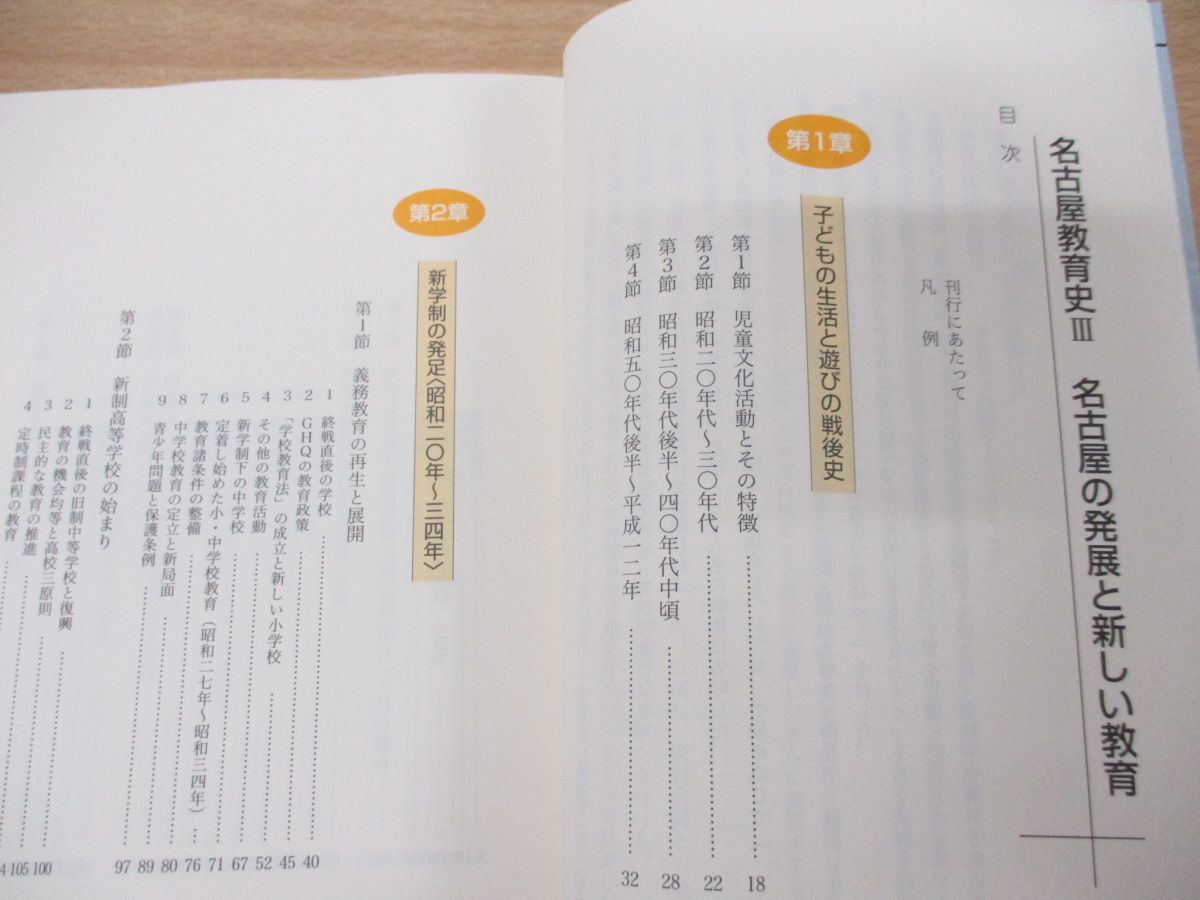 名古屋教育史Ⅲ 名古屋の発展と新しい教育
目次
刊行にあたって
凡例
第1章
子どもの生活と遊びの戦後史
第1節 児童文化活動とその特徴 18
第2節 昭和二〇年代〜三〇年代 22
第3節 昭和三〇年代後半〜四〇年代中頃 28
第4節 昭和五〇年代後半〜平成一二年 32
第2章
新学制の発足〈昭和二〇年〜三四年〉
第1節 義務教育の再生と展開
1 終戦直後の学校 40
2 GHQの教育政策 45
3 「学校教育法」の成立と新しい小学校 52
4 その他の教育活動 67
5 新学制下の中学校 71
6 定着し始めた小・中学校教育(昭和二七年〜昭和三四年) 76
7 教育諸条件の整備 80
8 中学校教育の定立と新局面 89
9 青少年問題と保護条例 97
第2節 新制高等学校の始まり
1 終戦直後の旧制中等学校と復興 100
2 教育の機会均等と高校三原則 105
3 民主的な教育の推進 4
4 定時制課程の教育